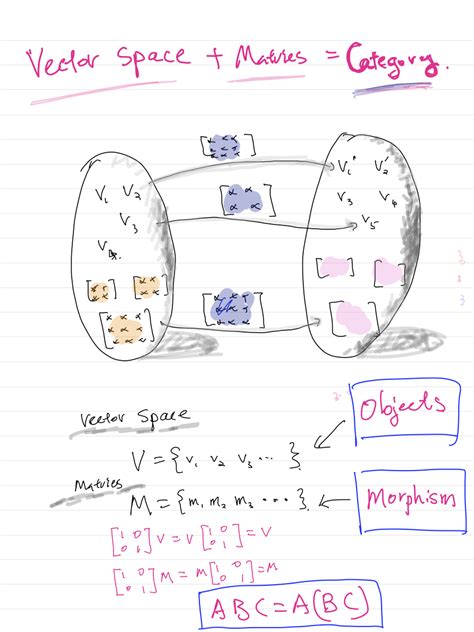 Vector Space + Matries = Category.
V₁' V₂'
V₁ V₂
V₃ V₄
V₃
V₅
V₄
Vector Space
Objects
V = {v₁ v₂ v₃ ...}
Matries
M = {m₁ m₂ m₃ ...}
Morphism
[1 0 0 1] V = V [1 0 0 1] = V
[1 0 0 1] M = M [1 0 0 1] = M
ABC = A(BC)